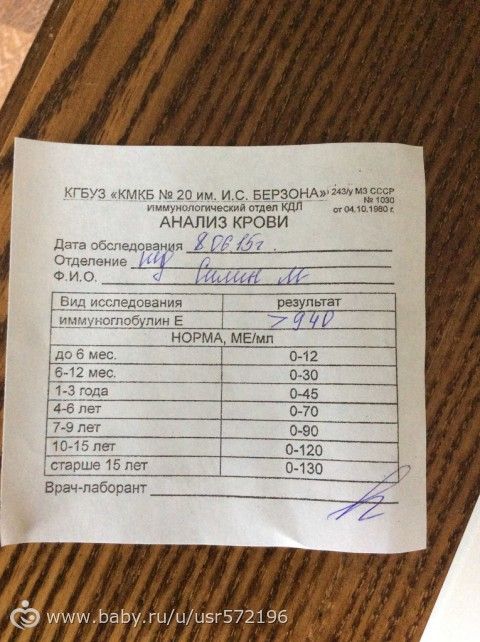 КГБУЗ «КМКБ № 20 им. И.С. БЕРЗОНА» 243/у МЗ СССР
Иммунологический отдел КДЛ № 1030
АНАЛИЗ КРОВИ от 04.10.1980 г.
Дата обследования 8.06.15г.
Отделение
Ф.И.О. Силин М
Вид исследования результат
иммуноглобулин Е >940
НОРМА, МЕ/мл
до 6 мес. 0-12
6-12 мес. 0-30
1-3 года 0-45
4-6 лет 0-70
7-9 лет 0-90
10-15 лет 0-120
старше 15 лет 0-130
Врач-лаборант
www.baby.ru/u/usr572196